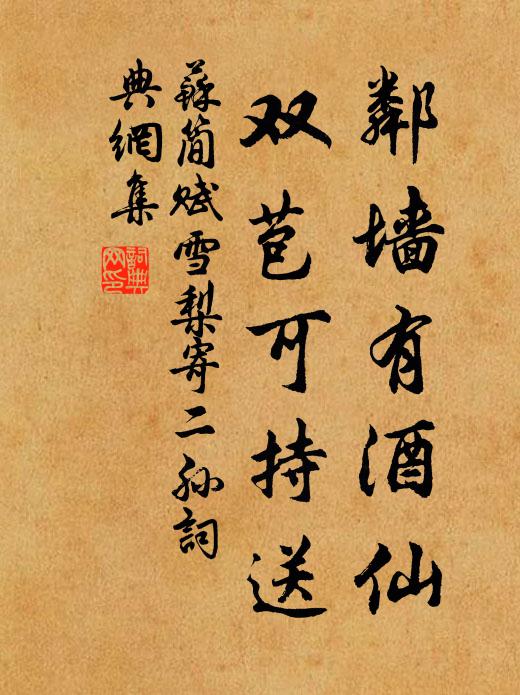 鄰墙有酒仙
双苞可持送
蘇簡赋雪梨寄二孙詞
典網集
詞典网印